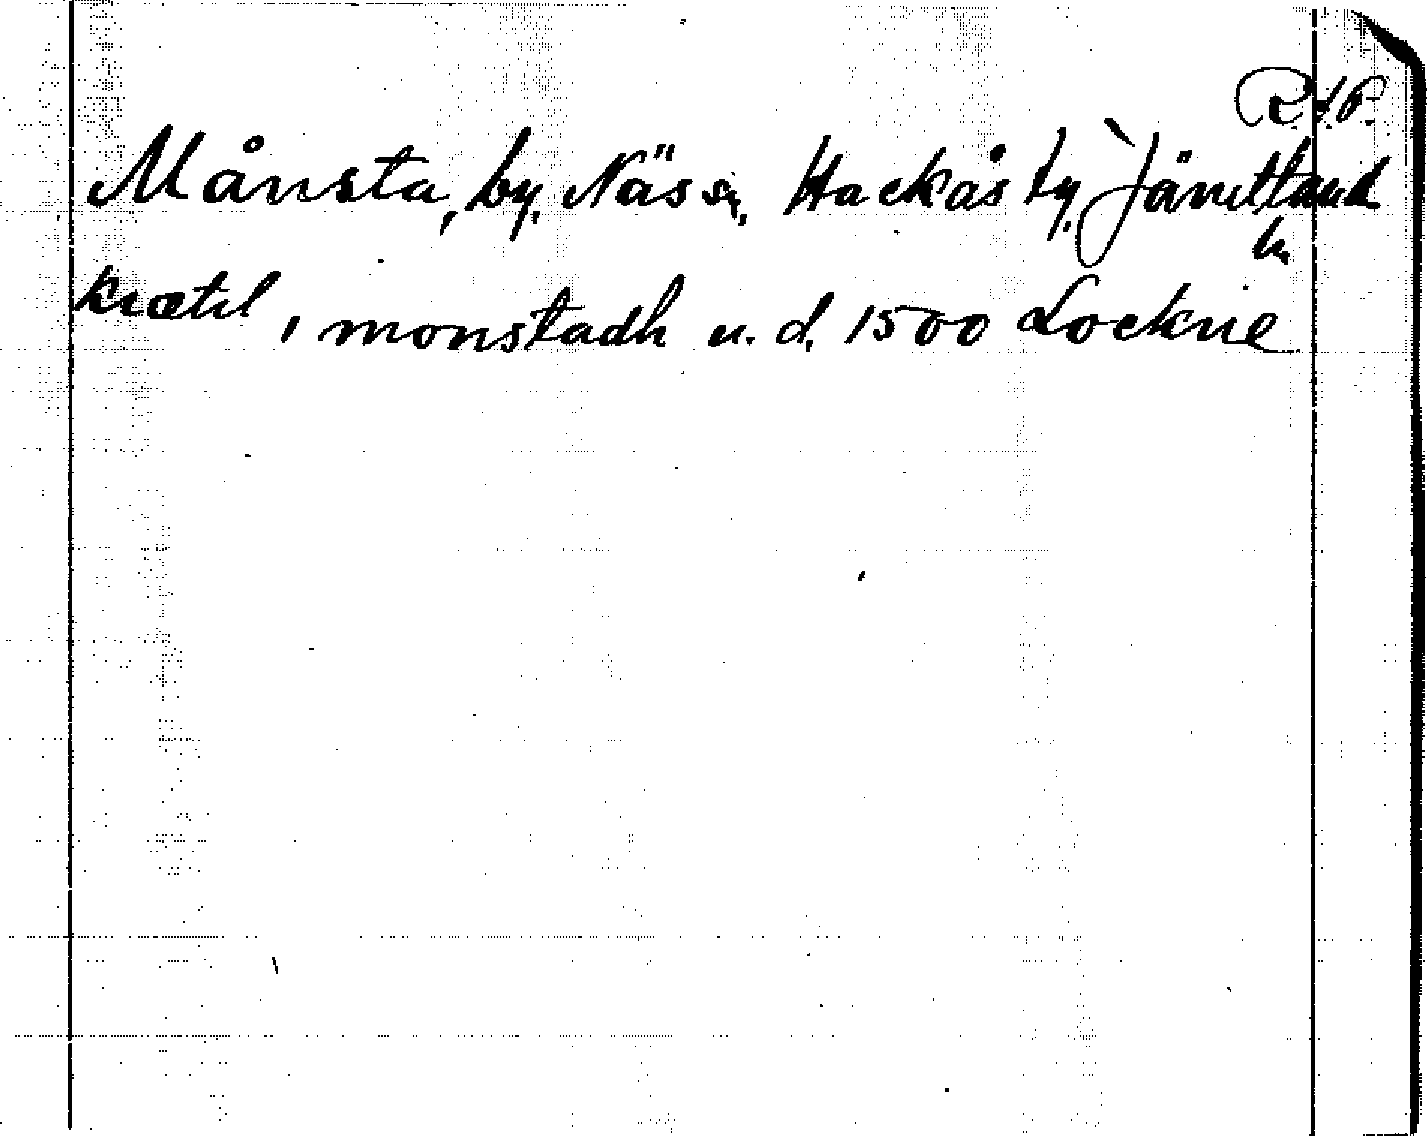 R.f.P.
Månsta, by. Näs sn, Hackås tg. Jämtland
ln
kiætil, i monstadh u. d. 1500 Lockne